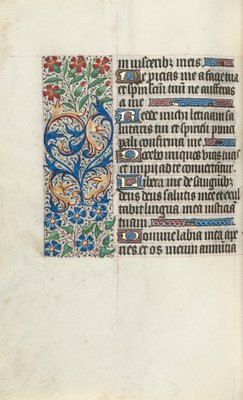 in visceribz meis
Ne proicias me a facie tua
et spm scm tuu ne auferas
a me
Redde michi leticiam sa
lutaris tui et spiritu princi
pali confirma me
Docebo iniquos vias tuas
et impij ad te convertentur
Libera me de sanguibz
deus deus salutis mee et exul
tabit lingua mea iusticia
tuam
Domine labia mea ape
ries et os meum annuncia